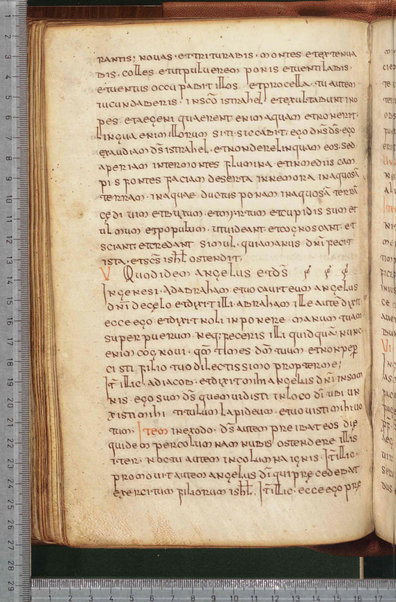 rantis; novas · et trituradis · montes et extenua
dis · colles et ut pulverem ponis et ventilabis ·
et ventus occupabit illos · et procella · tu autem
iucundaberis · in sc̄o istrahel · et exultabunt ino
pes · et aegeni quaerent enim aquam et non erit ·
lingua enim illorum siti siccabit · ego dn̄s ds̄ · ego
exaudiam ds̄ istrahel · et non derelinquam eos · sed
aperiam in termontes flumina et in mediis cam
pis fontes · faciam deserta in nemora inaquosā
terram · in aquae ductus ponam inaquosā terrā
cedrum et buxum · et myrtum et cupidissum et
ulmum et populum · ut videant et cognoscant et
sciant · et credant simul · quia manus dn̄i fecit
ista · et sc̄s isrl̄ ostendit ·
V Quod idem angelus et ds̄
In genesi · ad abraham et vocavit eum angelus
dn̄i de celo et dixit illi abraham ille autē dixit
ecce ego et dixit noli inponere · manum tuam
super puerum · neq; feceris illi quidquam nunc
enim cognovi · qm̄ times dm̄ tuum et non peper
cisti filio tuo dilectissimo propter me;
It̄ illic · ad iacob · et dixit mihi angelus dn̄i in som
nis · ego sum ds̄ quem vidisti in loco dī ubi un
xisti mihi · titulum lapideum · et vovisti mihi vo
tum; Item in exodo · ds̄ autem preibat eos die
quidem per columnam nubis ostendere illis
iter · noctu autem in columna ignis · It̄ illic ·
promovit autem angelus dī qui precedebat
exercitum filiorum isrl̄ · It̄ illic · ecce ego pre